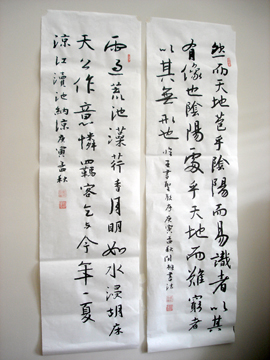 然而天地苞乎陰陽而易識者以其
有像也陰陽處乎天地而難窮者
以其無形也 王書聖教序庚寅孟秋
雨过荒池藻荇香月明如水浸胡床
天公作意憐羈客乞与今年一夏
涼江瀆池納涼庚寅孟秋